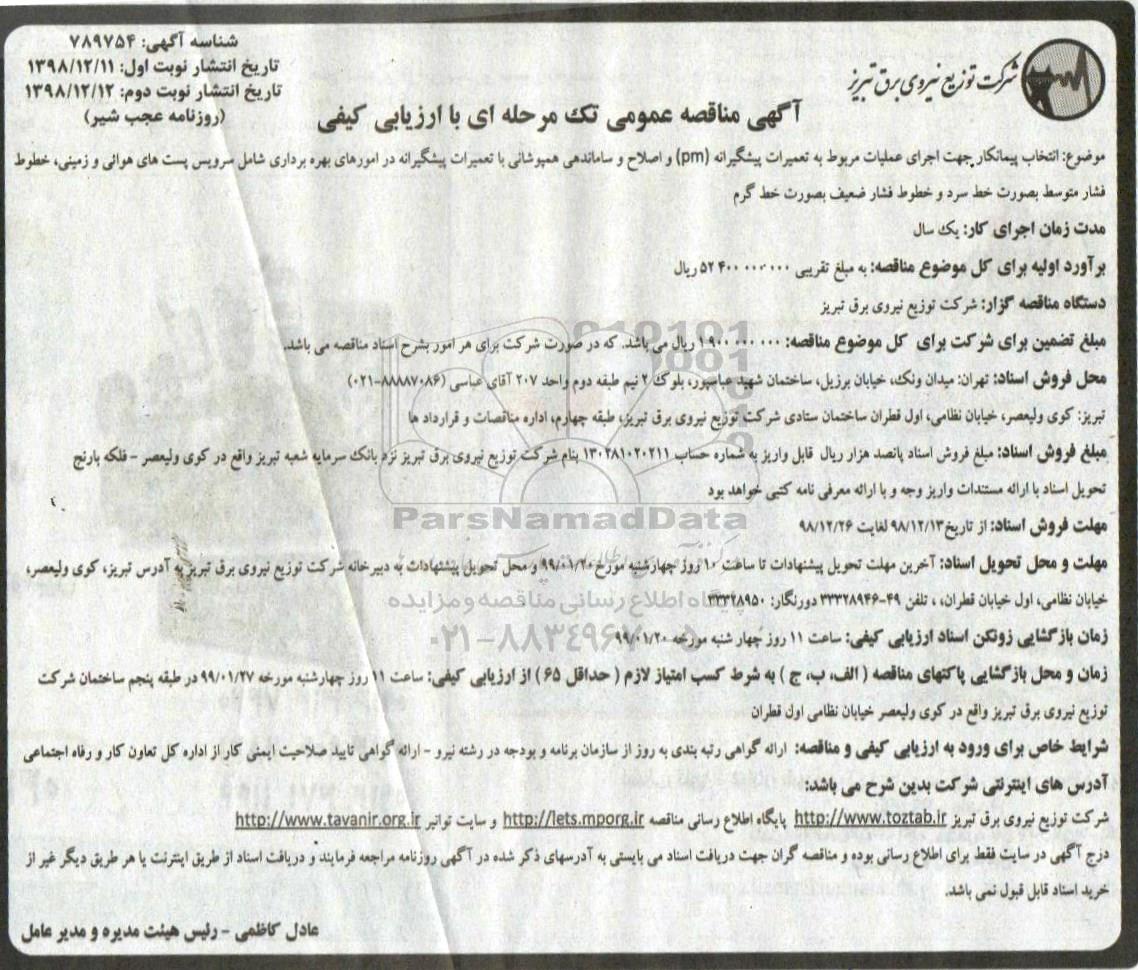 شناسه آگهی: ۷۸۹۷۵۴
تاریخ انتشار نوبت اول: ۱۳۹۸/۱۲/۱۱
تاریخ انتشار نوبت دوم: ۱۳۹۸/۱۲/۱۲
(روزنامه عجب شیر)
شرکت توزیع نیروی برق تبریز
آگهی مناقصه عمومی تک مرحله ای با ارزیابی کیفی
موضوع: انتخاب پیمانکار جهت اجرای عملیات مربوط به تعمیرات پیشگیرانه (pm) و اصلاح و ساماندهی همپوشانی با تعمیرات پیشگیرانه در امورهای بهره برداری شامل سرویس پست های هوائی و زمینی، خطوط
فشار متوسط بصورت خط سرد و خطوط فشار ضعیف بصورت خط گرم
مدت زمان اجرای کار: یک سال
برآورد اولیه برای کل موضوع مناقصه: به مبلغ تقریبی ۵۲ ۴۰۰ ۰۰۰ ۰۰۰ ریال
دستگاه مناقصه گزار: شرکت توزیع نیروی برق تبریز
مبلغ تضمین برای شرکت برای کل موضوع مناقصه: ۱ ۹۰۰ ۰۰۰ ۰۰۰ ریال می باشد. که در صورت شرکت برای هر امور بشرح اسناد مناقصه می باشد.
محل فروش اسناد: تهران: میدان ونک، خیابان برزیل، ساختمان شهید عباسپور، بلوک ۲ نیم طبقه دوم واحد ۲۰۷ آقای عباسی (۸۸۸۸۷۰۸۶-۰۲۱)
تبریز: کوی ولیعصر، خیابان نظامی، اول قطران ساختمان ستادی شرکت توزیع نیروی برق تبریز، طبقه چهارم، اداره مناقصات و قرارداد ها
مبلغ فروش اسناد: مبلغ فروش اسناد پانصد هزار ریال قابل واریز به شماره حساب ۱۳۰۲۸۱۰۲۰۲۱۱ بنام شرکت توزیع نیروی برق تبریز نزد بانک سرمایه شعبه تبریز واقع در کوی ولیعصر - فلکه بارنج
تحویل اسناد با ارائه مستندات واریز وجه و با ارائه معرفی نامه کتبی خواهد بود
مهلت فروش اسناد: از تاریخ ۹۸/۱۲/۱۳ لغایت ۹۸/۱۲/۲۶
ParsNamadData
مهلت و محل تحویل اسناد: آخرین مهلت تحویل پیشنهادات تا ساعت ۱۰ روز چهارشنبه مورخ ۹۹/۰۱/۲۰ و محل تحویل پیشنهادات به دبیرخانه شرکت توزیع نیروی برق تبریز به آدرس تبریز، کوی ولیعصر،
خیابان نظامی، اول خیابان قطران، ، تلفن ۴۹-۳۳۳۲۸۹۴۶ دورنگار: ۳۳۳۲۸۹۵۰
پایگاه اطلاع رسانی مناقصه و مزایده
زمان بازگشایی زونکن اسناد ارزیابی کیفی: ساعت ۱۱ روز چهار شنبه مورخه ۹۹/۰۱/۲۰
۰۲۱-۸۸۳۴۹۶۷۰-۵
زمان و محل بازگشایی پاکتهای مناقصه ( الف، ب، ج ) به شرط کسب امتیاز لازم ( حداقل ۶۵ ) از ارزیابی کیفی: ساعت ۱۱ روز چهارشنبه مورخه ۹۹/۰۱/۲۷ در طبقه پنجم ساختمان شرکت
توزیع نیروی برق تبریز واقع در کوی ولیعصر خیابان نظامی اول قطران
شرایط خاص برای ورود به ارزیابی کیفی و مناقصه: ارائه گواهی رتبه بندی به روز از سازمان برنامه و بودجه در رشته نیرو - ارائه گواهی تایید صلاحیت ایمنی کار از اداره کل تعاون کار و رفاه اجتماعی
آدرس های اینترنتی شرکت بدین شرح می باشد:
شرکت توزیع نیروی برق تبریز http://www.toztab.ir پایگاه اطلاع رسانی مناقصه http://iets.mporg.ir و سایت توانیر http://www.tavanir.org.ir
درج آگهی در سایت فقط برای اطلاع رسانی بوده و مناقصه گران جهت دریافت اسناد می بایستی به آدرسهای ذکر شده در آگهی روزنامه مراجعه فرمایند و دریافت اسناد از طریق اینترنت یا هر طریق دیگر غیر از
خرید اسناد قابل قبول نمی باشد.
عادل کاظمی - رئیس هیئت مدیره و مدیر عامل